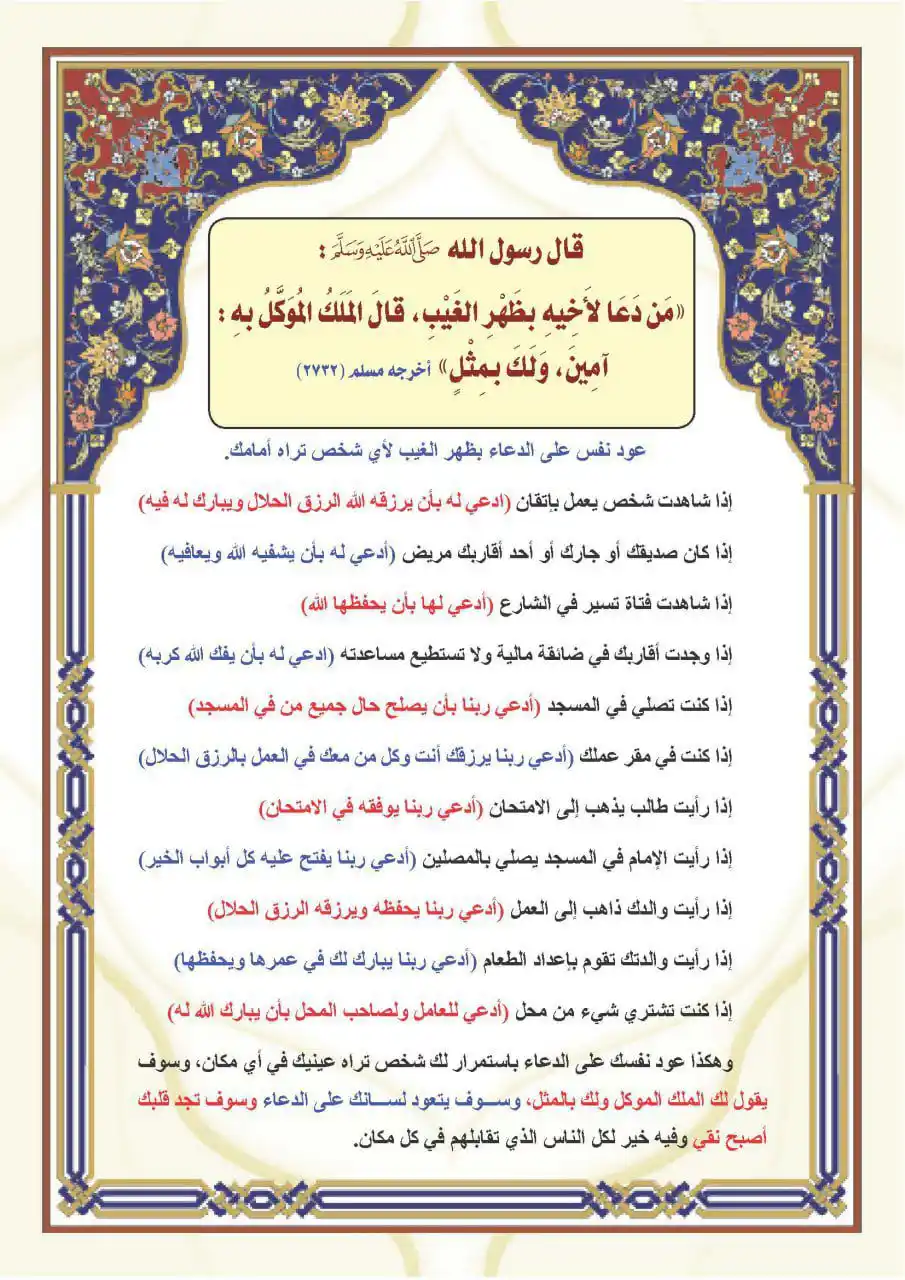 قال رسول الله صَلَّى اللَّهُ عَلَيْهِ وَسَلَّمَ :
«مَن دَعَا لأَخِيهِ بظَهْرِ الغَيْبِ، قالَ المَلَكُ المُوَكَّلُ بهِ :
آمِينَ، وَلَكَ بمِثْلٍ» أخرجه مسلم (٢٧٣٢)
عود نفس على الدعاء بظهر الغيب لأي شخص تراه أمامك.
إذا شاهدت شخص يعمل بإتقان (ادعي له بأن يرزقه الله الرزق الحلال ويبارك له فيه)
إذا كان صديقك أو جارك أو أحد أقاربك مريض (أدعي له بأن يشفيه الله ويعافيه)
إذا شاهدت فتاة تسير في الشارع (أدعي لها بأن يحفظها الله)
إذا وجدت أقاربك في ضائقة مالية ولا تستطيع مساعدته (ادعي له بأن يفك الله كربه)
إذا كنت تصلي في المسجد (أدعي ربنا بأن يصلح حال جميع من في المسجد)
إذا كنت في مقر عملك (أدعي ربنا يرزقك أنت وكل من معك في العمل بالرزق الحلال)
إذا رأيت طالب يذهب إلى الامتحان (أدعي ربنا يوفقه في الامتحان)
إذا رأيت الإمام في المسجد يصلي بالمصلين (أدعي ربنا يفتح عليه كل أبواب الخير)
إذا رأيت والدك ذاهب إلى العمل (أدعي ربنا يحفظه ويرزقه الرزق الحلال)
إذا رأيت والدتك تقوم بإعداد الطعام (أدعي ربنا يبارك لك في عمرها ويحفظها)
إذا كنت تشتري شيء من محل (أدعي للعامل ولصاحب المحل بأن يبارك الله له)
وهكذا عود نفسك على الدعاء باستمرار لك شخص تراه عينيك في أي مكان، وسوف
يقول لك الملك الموكل ولك بالمثل، وســوف يتعود لســـانك على الدعاء وسوف تجد قلبك
أصبح نقي وفيه خير لكل الناس الذي تقابلهم في كل مكان.